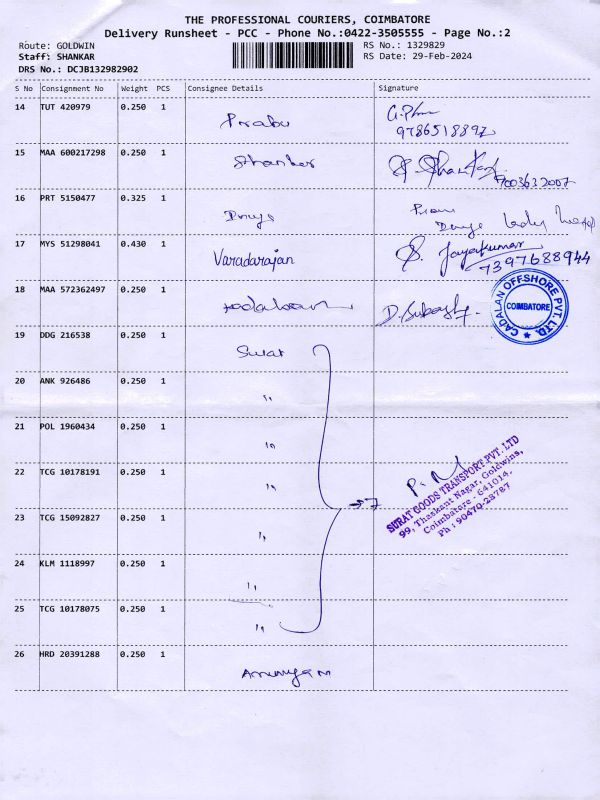 THE PROFESSIONAL COURIERS, COIMBATORE
Delivery Runsheet - PCC - Phone No.:0422-3505555 - Page No.:2
Route: GOLDWIN
RS No.: 1329829
Staff: SHANKAR
RS Date: 29-Feb-2024
DRS No.: DCJB132982902
S No Consignment No Weight PCS Consignee Details Signature
14 TUT 420979 0.250 1 Prabu
9786518897
15 MAA 600217298 0.250 1 Shankar
9003632007
16 PRT 5150477 0.325 1
17 MYS 51298041 0.430 1 Varadarajan Jayakumar
7397688944
18 MAA 572362497 0.250 1 D. Subash
CADALAN OFFSHORE PVT. LTD.
COIMBATORE
19 DDG 216538 0.250 1 Surat
20 ANK 926486 0.250 1 "
21 POL 1960434 0.250 1 "
22 TCG 10178191 0.250 1 "
7
SURAT GOODS TRANSPORT PVT. LTD
99, Thaskant Nagar, Goldwins,
Coimbatore - 641014.
Ph : 90470-23787
23 TCG 15092827 0.250 1 "
24 KLM 1118997 0.250 1 "
25 TCG 10178075 0.250 1 "
26 HRD 20391288 0.250 1